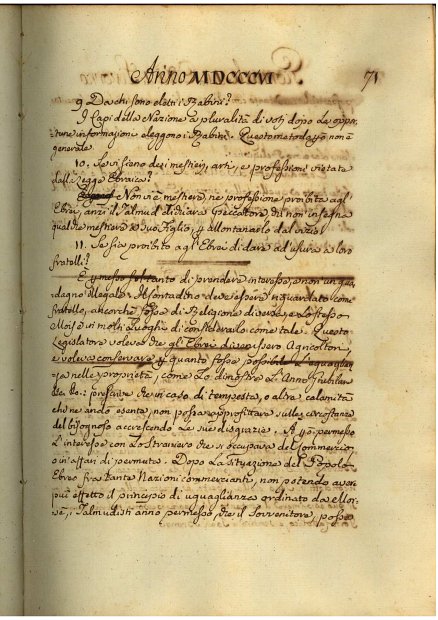 Anno MDCCCVI. 71
9. Da chi sono eletti i Rabini?
I Capi della Nazione a pluralità di voti dopo le oppor
tune informazioni eleggono i Rabini. Questo metodo però non è
generale.
10. Se vi sieno dei mestieri, arti, e professioni vietate
dalla Legge Ebraica?
Non vi è mestiere, ne professione proibita agl'
Ebrei, anzi il Talmud dichiara peccatore, chi non insegna
qualche mestiere al suo Figlio, p allontanarlo dal vizio.
11. Se sia proibito agl'Ebrei di dare ad usura a loro
fratelli?
È permesso soltanto di prendere interesse, e non un gua,
dagno illegale. Il contadino deve essere riguardato come
fratello, ancorchè fosse di Religione diversa, e Lo stesso
Moisè in molti Luoghi di considerarlo come tale. Questo
Legislatore voleva che gli Ebrei divenissero Agricoltori,
e voleva conservare p quanto fosse possibile L'eguaglian,
za nelle proprietà, come Lo dimostra L'Anno Giubilare
prescrive che in caso di tempesta, o altra calamità
chi ne andò esente, non possa approfittare sulle circostanze
del bisognoso accrescendo Le sue disgrazie. È permesso
L'interesse con Lo straniero che si occupava del Commercio,
o in affari di permuta. Dopo La Situazione del Popolo
Ebreo fra tante Nazioni commercianti, non potendo aver
più effetto il principio di uguaglianza ordinato da Moi,
sè, i Talmudisti anno permesso, che il Sovvenitore, possa